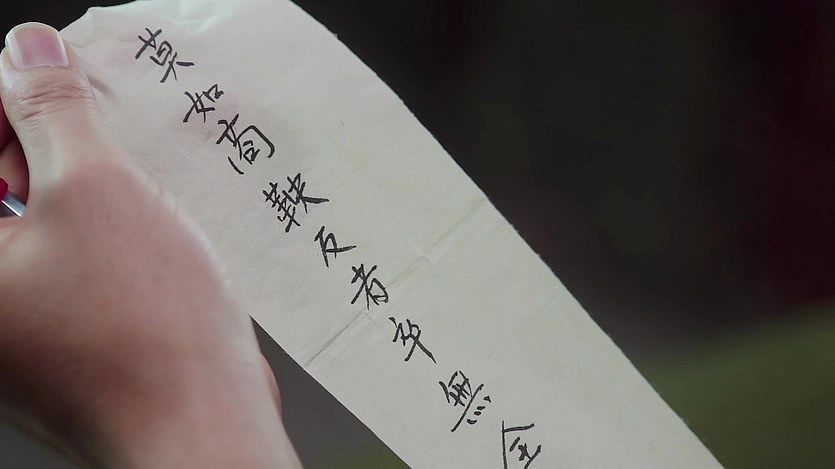 莫如商鞅反者卒無全